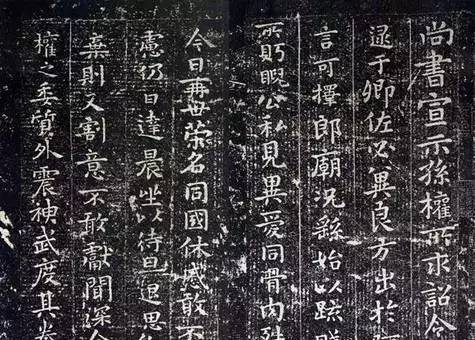 尚書宣示孫權所求詔令
逮于卿佐必冀良方出於阿
言可擇郎廟況繇始以疏賤
所眄睨公私見異愛同骨肉殊
今日再世榮名同國休慼敢不
慮仍日達晨坐以待旦退思
棄則又割意不敢獻聞深念
權之委質外震神武度其拳